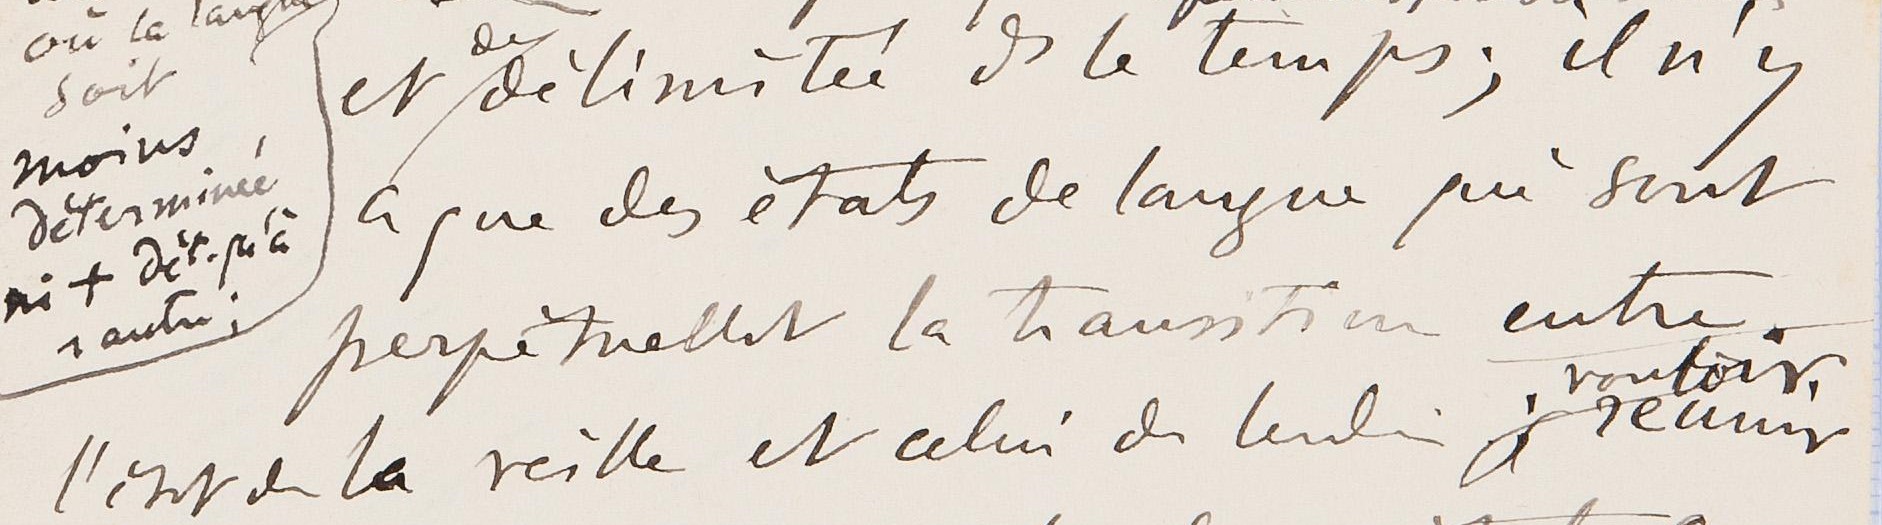 où la langue
soit
moins
déterminée
ni + dét. qu'à
l'autre;
de
et délimitée ds le temps; il n'y
a que des états de langue qui sont
perpétuellt la transition entre
vouloir
l'état de la veille et celui du lendin; réunir